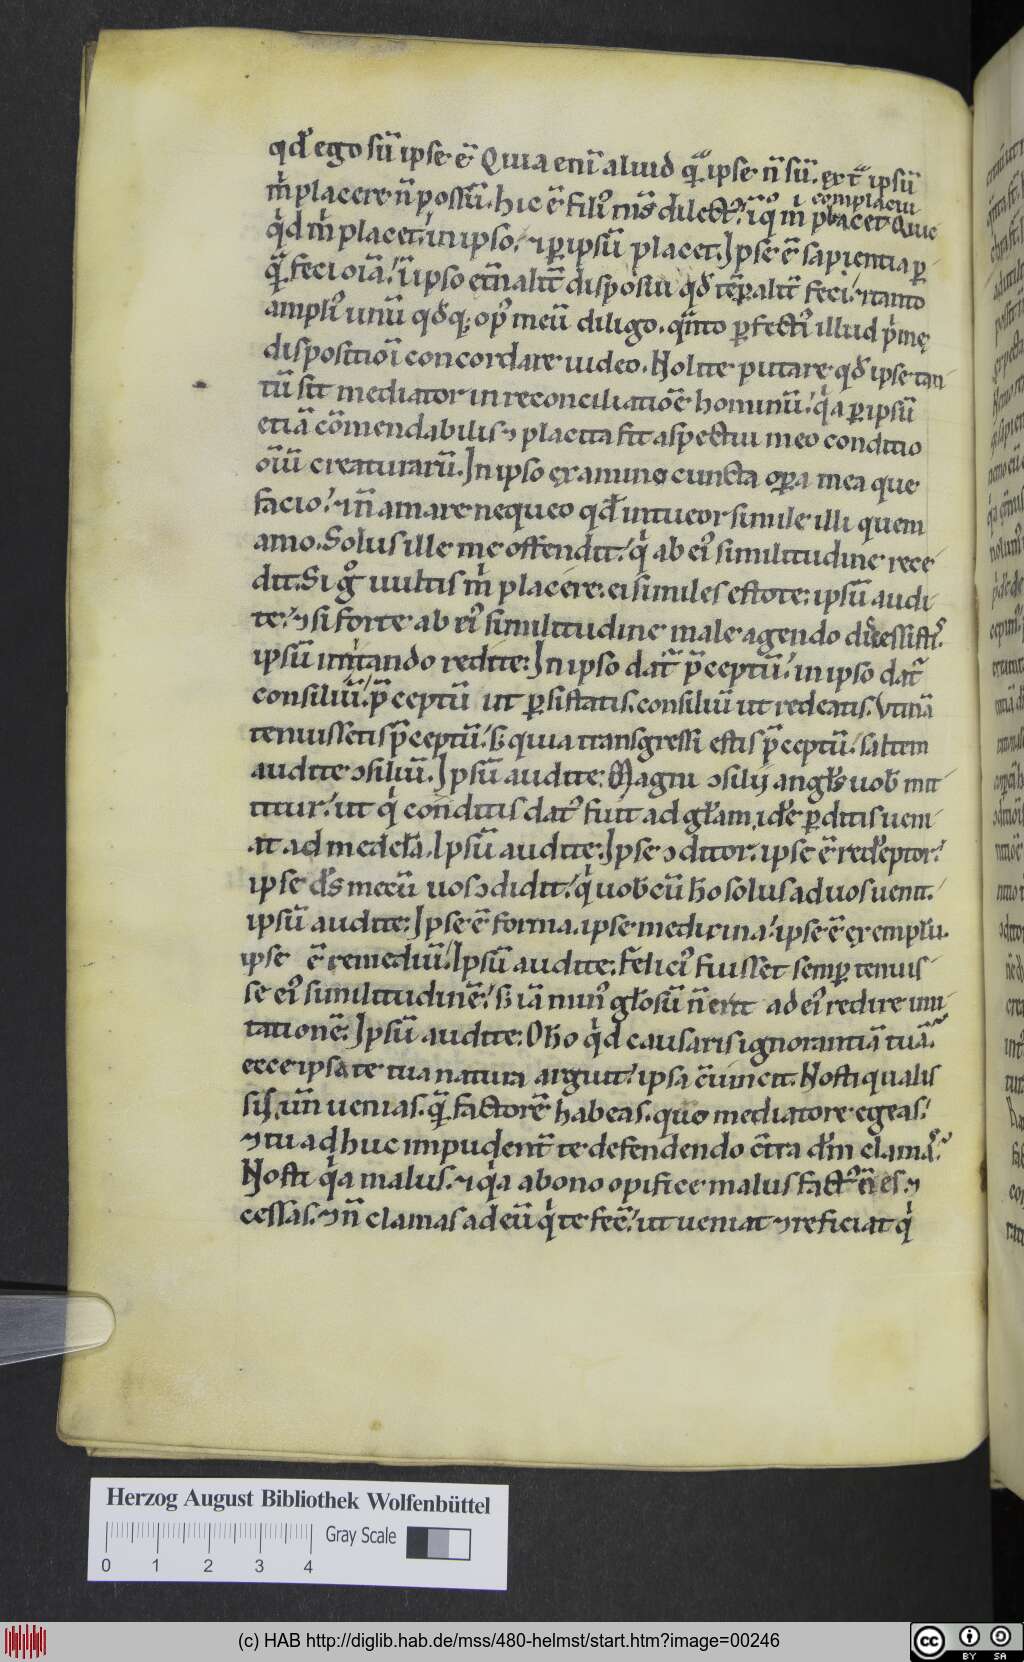 qd̄ ego sū ipse ē Quia enī aliud q̄ ipse n̄ sū. ext̄ ipsū
m̄ placere n̄ possū. hic ē filiꝰ m̄s dilectꝰ. ī q̊ m i placet Quic
complacui
qͥd m̄ placet. in ipso. ⁊ ꝑ ipsū placet. Ipse ē sapientia ꝑ
quā feci oīa. ī ipso etn̄alit̄ disposui qd̄ tēꝑalit̄ feci. ⁊ tanto
ampliꝰ unū qd̄q; opꝰ meū diligo. quͣnto ꝑfectiꝰ illud p̄me
dispositioī concordare uideo. Nolite putare qd̄ ipse tan
tū sit mediator in reconciliatiōe hominū. qͥa ꝑ ipsū
etiā cōmendabilis ⁊ placita fit aspectui meo conditio
oīū creaturarū. In ipso examino cuncta oꝑa mea que
facio. ⁊ n̄ amare nequeo qd̄ intueor simile illi quem
amo. Solus ille me offendit. qͥ ab eiꝰ similitudine rece
dit. Si gͦ uultis m̄ placere. ei similes estote. ipsū audi
te. ⁊ si forte ab eiꝰ similitudine male agendo discessistis.
ipsū imitando redite. In ipso dat̄ p̄ceptū. in ipso dat̄
consiliū. p̄ceptū ut ꝑsistatis. consiliū ut redeatis. Vtinā
tenuissetis p̄ceptū. s; quia transgressi estis p̄ceptū. saltem
audite ↄsiliū. Ipsū audite. Magni ↄsilij angl̄s uob̄ mit
titur. ut qͥ conditis datꝰ fuit ad gl̄am, idē ꝑditis ueni
at ad medelā. Ipsū audite. Ipse ↄditor. ipse ē red̄eptor.
ipse d̄s mecū uos ↄdidit. qͥ uob̄cū h̄o solus ad uos uenit.
ipsū audite. Ipse ē forma. ipse medicina. ipse ē exemplū.
ipse ē remediū. Ipsū audite. Feliciꝰ fuisset semꝑ tenuis
se eiꝰ similitudinē. s; iā nunc̄ gl̄osū n̄ erit ad eiꝰ redire imi
tationē. Ipsū audite. O h̄o qͥd causaris ignorantiā tuā.
ecce ipsa te tua natura arguit. ipsa c̄uincit. Nosti qualis
sis, un̄ uenias. quē factorē habeas. quo mediatore egeas.
⁊ tu adhuc impudent̄ te defendendo c̄tra d̄m clamas.
Nosti qͥa malus. ⁊ qͥa a bono opifice malus factꝰ n̄ es. ⁊
cessas. ⁊ n̄ clamas ad eū qͥ te fec̄. ut ueniat ⁊ reficiat qͥ
Herzog August Bibliothek Wolfenbüttel
Gray Scale
0 1 2 3 4
(c) HAB http://diglib.hab.de/mss/480-helmst/start.htm?image=00246
cc BY SA